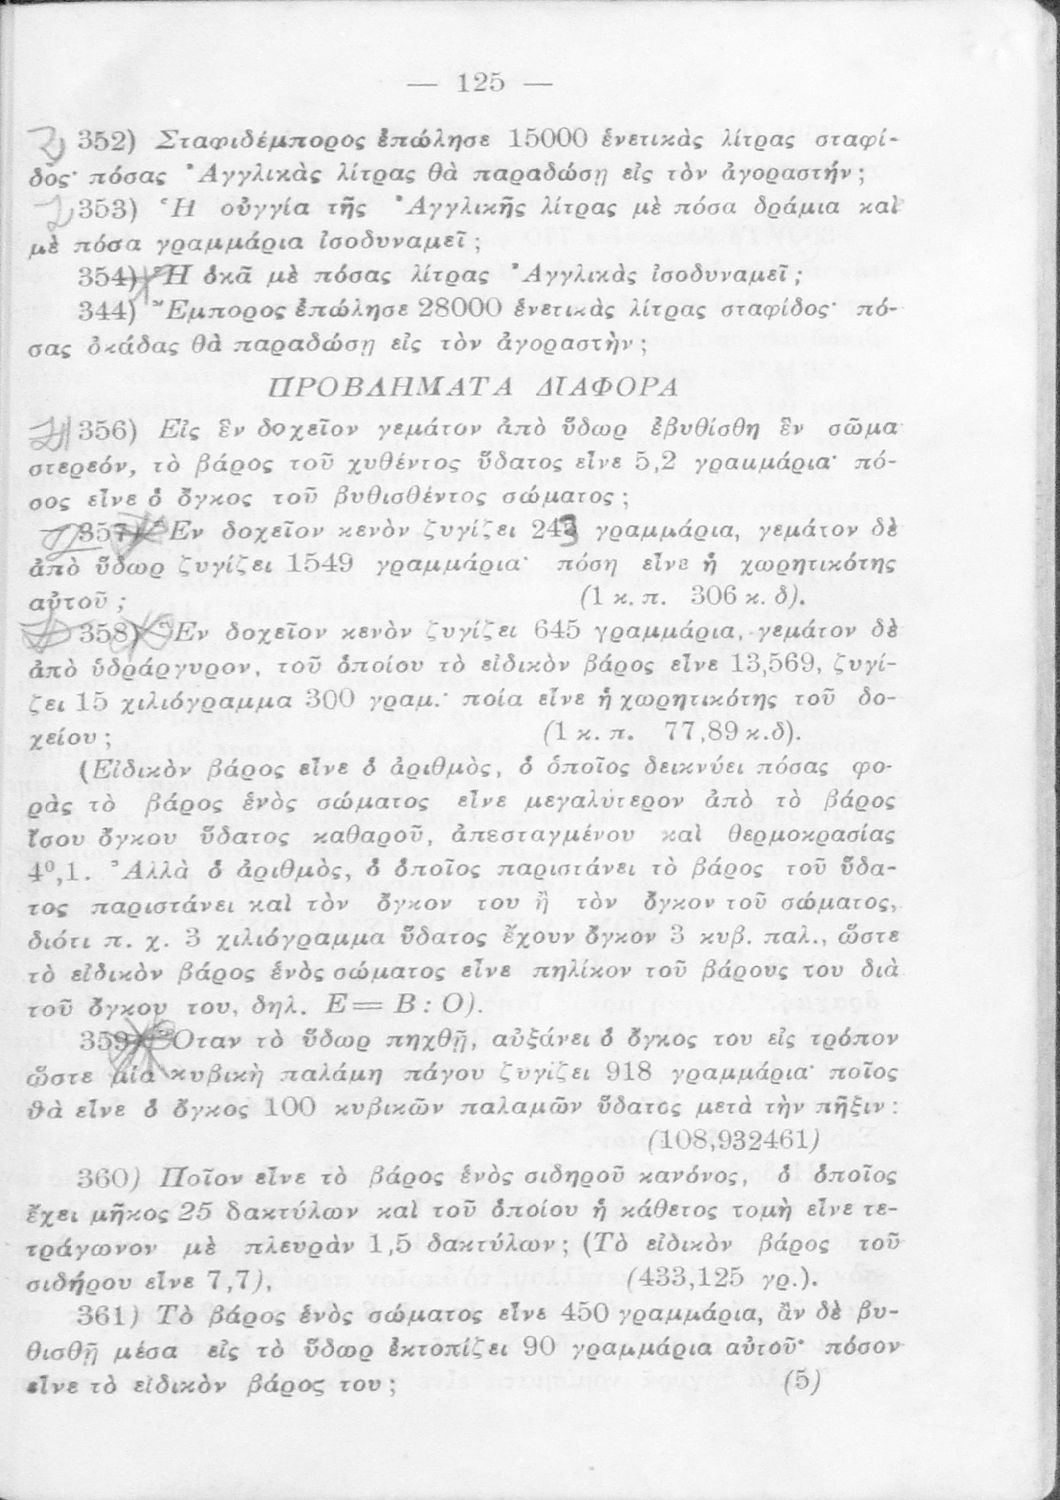 — 125 —
352) Σταφιδέμπορος ἐπώλησε 15000 ἑνετικὰς λίτρας σταφί-
δος· πόσας Ἀγγλικὰς λίτρας θὰ παραδώσῃ εἰς τὸν ἀγοραστήν;
353) Ἡ οὐγγία τῆς Ἀγγλικῆς λίτρας μὲ πόσα δράμια καὶ
μὲ πόσα γραμμάρια ἰσοδυναμεῖ;
354) Ἡ ὀκᾶ μὲ πόσας λίτρας Ἀγγλικὰς ἰσοδυναμεῖ;
344) Ἔμπορος ἐπώλησε 28000 ἑνετικὰς λίτρας σταφίδος· πό-
σας ὀκάδας θὰ παραδώσῃ εἰς τὸν ἀγοραστὴν;
ΠΡΟΒΛΗΜΑΤΑ ΔΙΑΦΟΡΑ
356) Εἰς ἓν δοχεῖον γεμάτον ἀπὸ ὕδωρ ἐβυθίσθη ἓν σῶμα
στερεόν, τὸ βάρος τοῦ χυθέντος ὕδατος εἶνε 5,2 γραμμάρια· πό-
σος εἶνε ὁ ὄγκος τοῦ βυθισθέντος σώματος;
357) Ἓν δοχεῖον κενὸν ζυγίζει 243 γραμμάρια, γεμάτον δὲ
ἀπὸ ὕδωρ ζυγίζει 1549 γραμμάρια· πόση εἶνε ἡ χωρητικότης
αὐτοῦ; (1 κ. π. 306 κ. δ).
358) Ἓν δοχεῖον κενὸν ζυγίζει 645 γραμμάρια, γεμάτον δὲ
ἀπὸ ὑδράργυρον, τοῦ ὁποίου τὸ εἰδικὸν βάρος εἶνε 13,569, ζυγί-
ζει 15 χιλιόγραμμα 300 γραμ.· ποία εἶνε ἡ χωρητικότης τοῦ δο-
χείου; (1 κ. π. 77,89 κ.δ).
(Εἰδικὸν βάρος εἶνε ὁ ἀριθμὸς, ὁ ὁποῖος δεικνύει πόσας φο-
ρὰς τὸ βάρος ἑνὸς σώματος εἶνε μεγαλύτερον ἀπὸ τὸ βάρος
ἴσου ὄγκου ὕδατος καθαροῦ, ἀπεσταγμένου καὶ θερμοκρασίας
4⁰,1. Ἀλλὰ ὁ ἀριθμὸς, ὁ ὁποῖος παριστάνει τὸ βάρος τοῦ ὕδα-
τος παριστάνει καὶ τὸν ὄγκον του ἢ τὸν ὄγκον τοῦ σώματος,
διότι π. χ. 3 χιλιόγραμμα ὕδατος ἔχουν ὄγκον 3 κυβ. παλ., ὥστε
τὸ εἰδικὸν βάρος ἑνὸς σώματος εἶνε πηλίκον τοῦ βάρους του διὰ
τοῦ ὄγκου του, δηλ. Ε = Β : Ο).
359) Ὅταν τὸ ὕδωρ πηχθῇ, αὐξάνει ὁ ὄγκος του εἰς τρόπον
ὥστε μία κυβικὴ παλάμη πάγου ζυγίζει 918 γραμμάρια· ποῖος
θὰ εἶνε ὁ ὄγκος 100 κυβικῶν παλαμῶν ὕδατος μετὰ τὴν πῆξιν:
(108,932461)
360) Ποῖον εἶνε τὸ βάρος ἑνὸς σιδηροῦ κανόνος, ὁ ὁποῖος
ἔχει μῆκος 25 δακτύλων καὶ τοῦ ὁποίου ἡ κάθετος τομὴ εἶνε τε-
τράγωνον μὲ πλευρὰν 1,5 δακτύλων; (Τὸ εἰδικὸν βάρος τοῦ
σιδήρου εἶνε 7,7), (433,125 γρ.).
361) Τὸ βάρος ἑνὸς σώματος εἶνε 450 γραμμάρια, ἂν δὲ βυ-
θισθῇ μέσα εἰς τὸ ὕδωρ ἐκτοπίζει 90 γραμμάρια αὐτοῦ· πόσον
εἶνε τὸ εἰδικὸν βάρος του; (5)